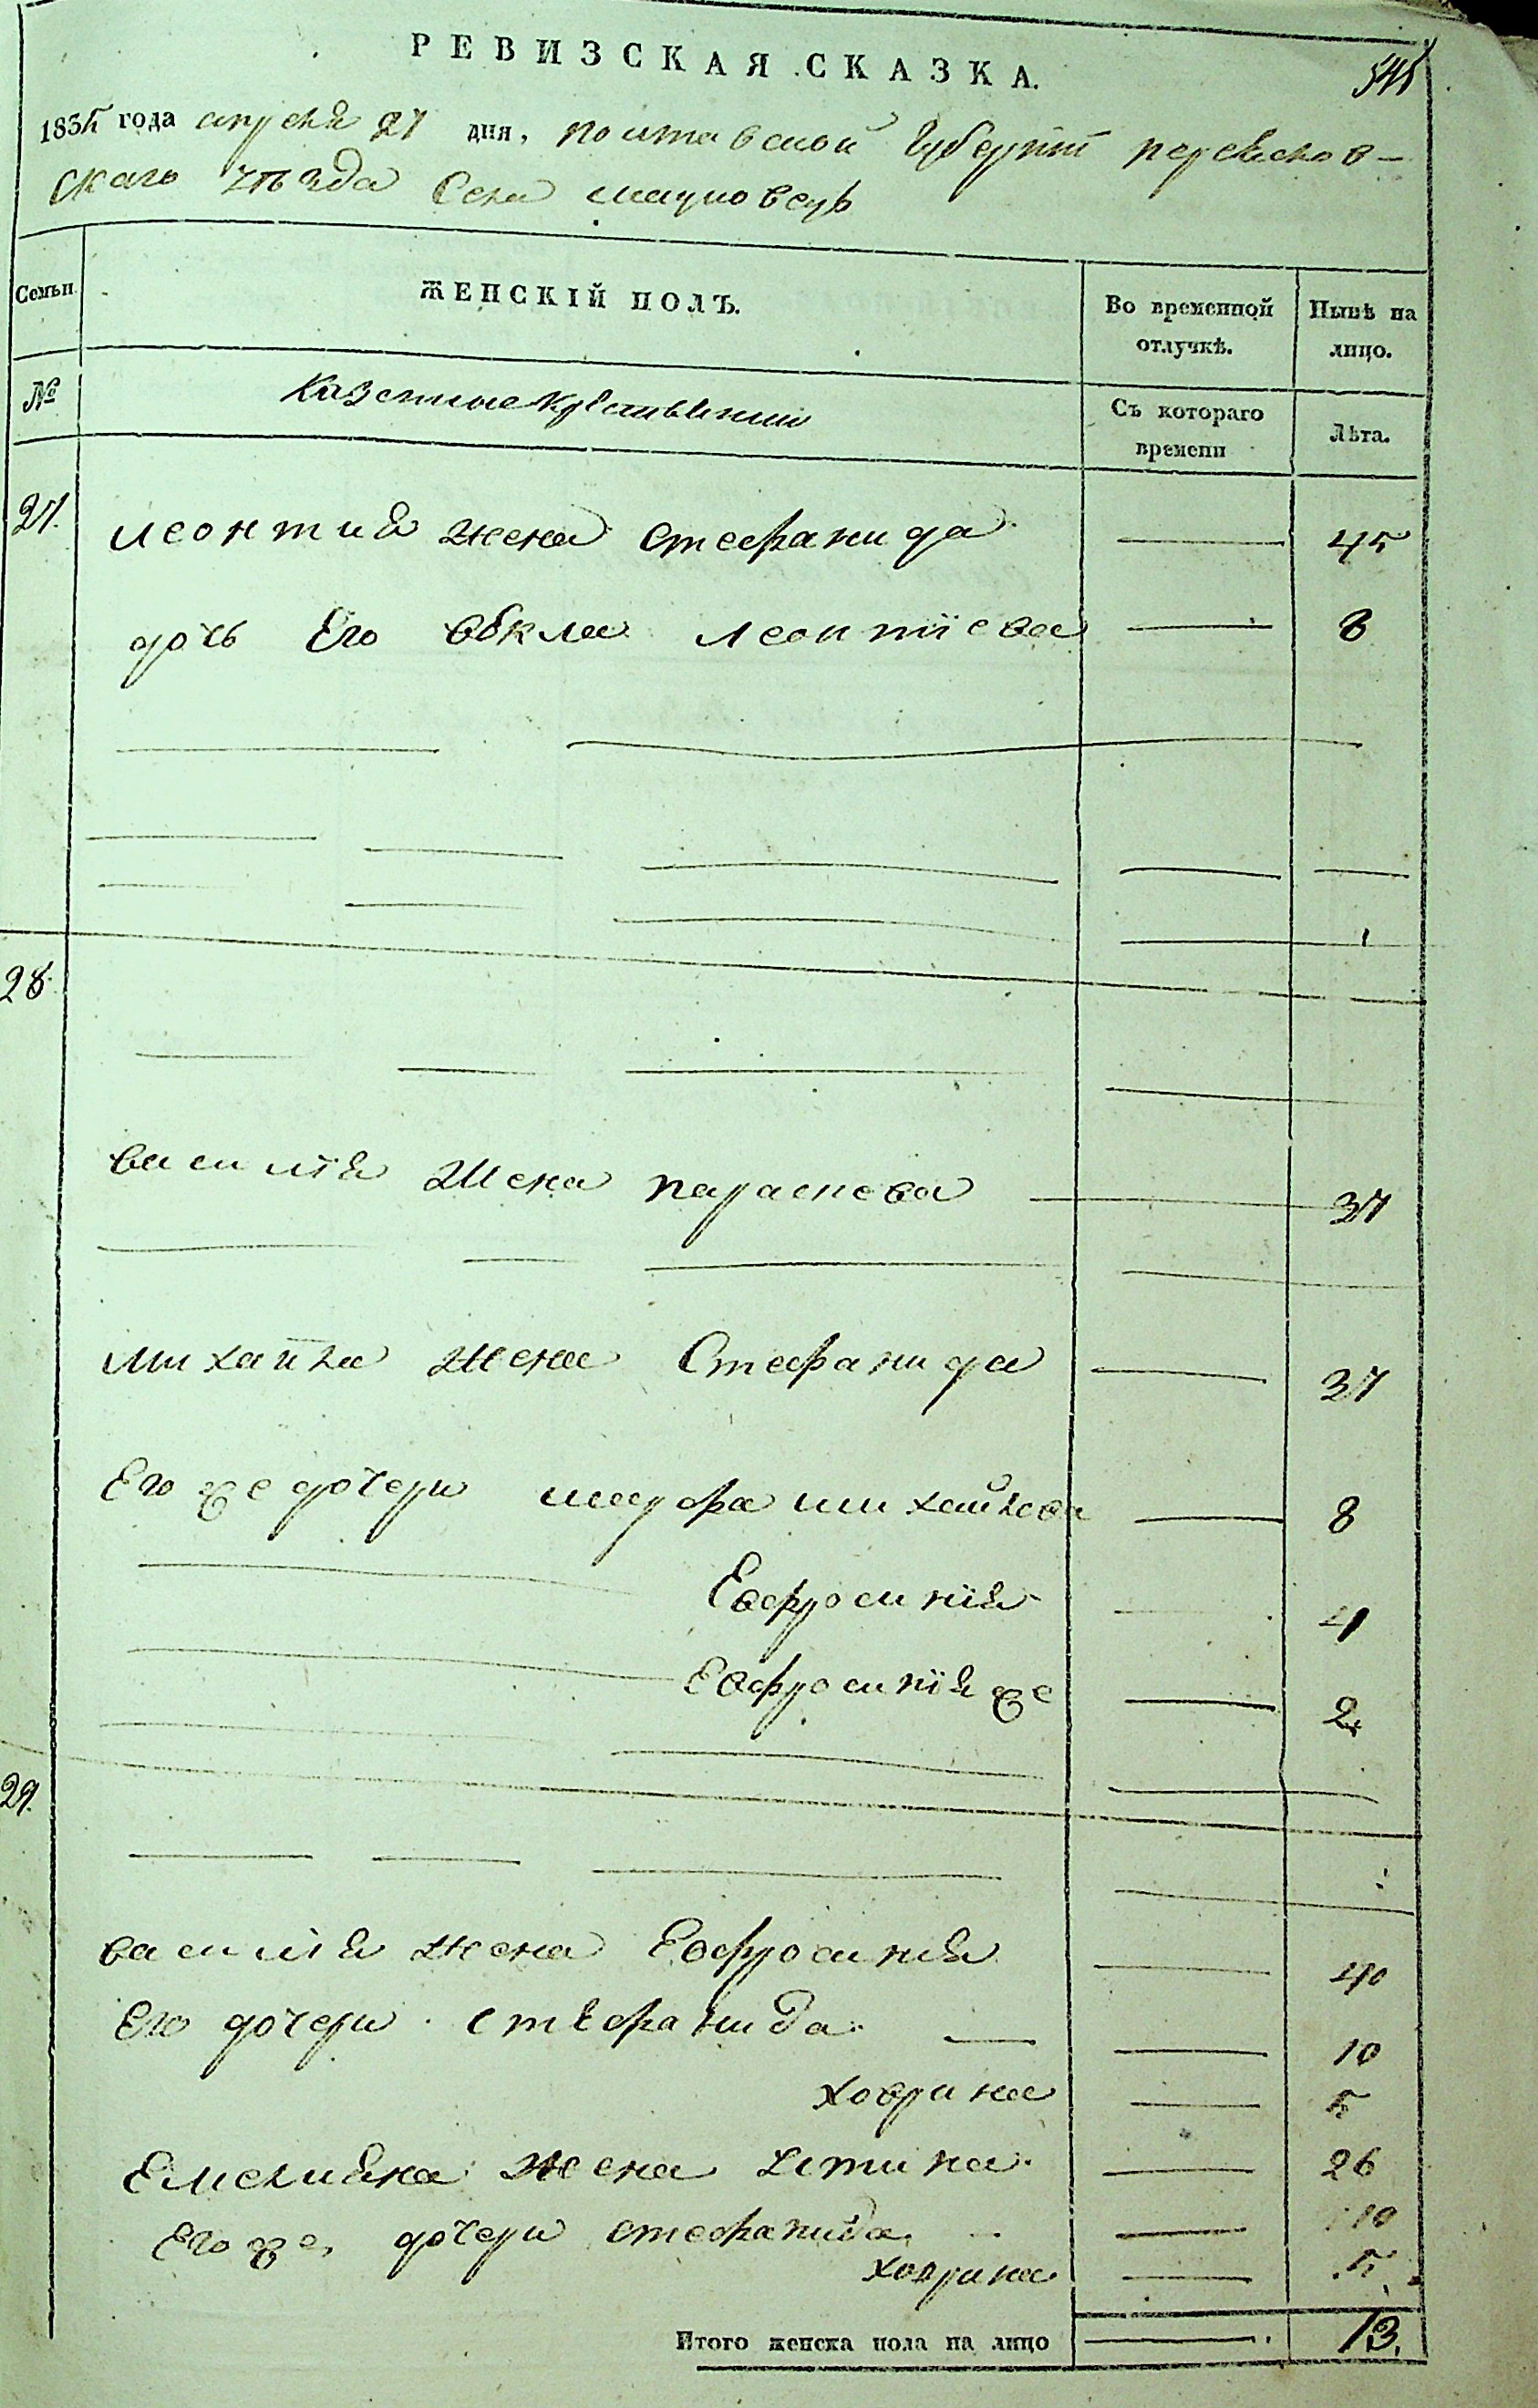 РЕВИЗСКАЯ СКАЗКА.
545
1835 года апреля 27 дня, полтавской Губернїи переяслов-
скаго уѣзда Села мацковецъ
Семьи
ЖЕНСКІЙ ПОЛЪ.
Во временной отлучкѣ.
Нынѣ на лицо.
№
Казенные крестьяники
Съ котораго времени
Лѣта.
27. леонтия жена стефанида 45
дочь Его векла леонтїева 8
28.
василїя жена параскева 37
михайла жена Стефанида 37
Его же дочери мавра михайлова 8
Евфросинїя 4
Евфросинїя же 2
29.
василїя жена Евфросиния 40
Его дочери стефанида 10
ховрина 5
Емелияна жена устина 26
Его же дочери стефанида 10
ховрина 5
Итого женска пола на лицо 13.